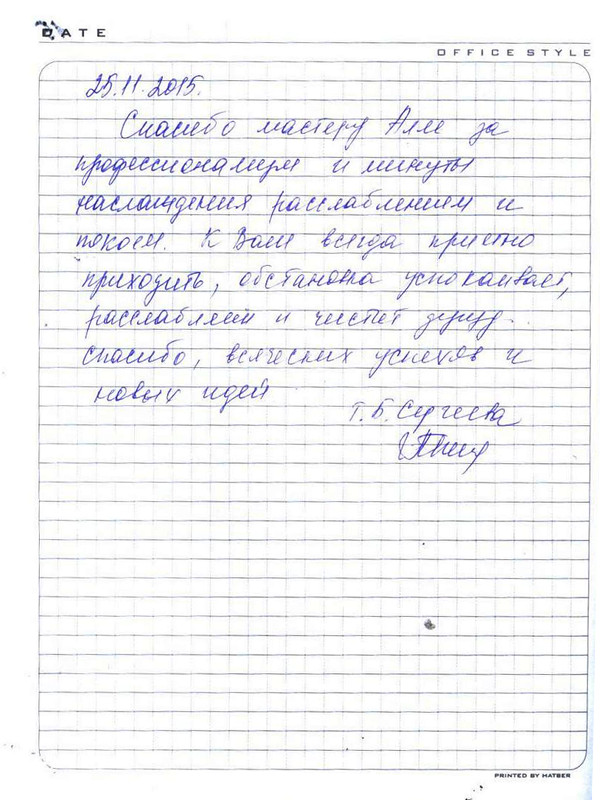 DATE
OFFICE STYLE
25.11.2015.
Спасибо мастеру Алле за
профессионализм и минуты
наслаждения расслаблением и
покоем. К Вам всегда приятно
приходить, обстановка успокаивает,
расслабляет и чистит душу.
спасибо, всяческих успехов и
новых идей
Т.Б.
PRINTED BY HATBER